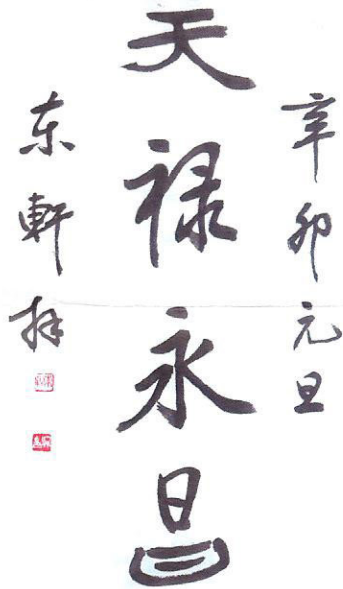 辛卯元旦
天禄永昌
东軒拜